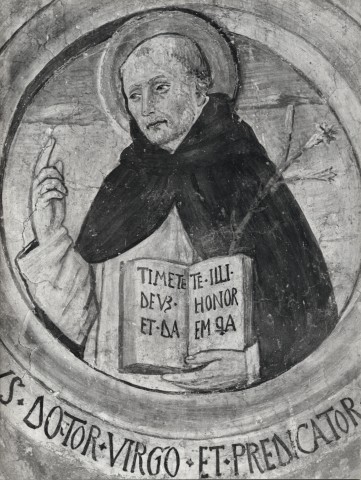 TIMETE
DEUS
ET·DA
TE·ILLI·
HONOR
EM QA
IS·DO·TOR·VIRGO·ET·PREDICATOR